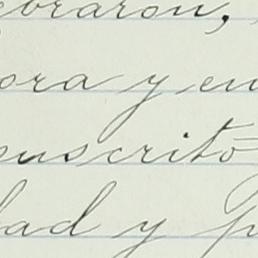 ebraron,
ora y en
suscrito
dad y p